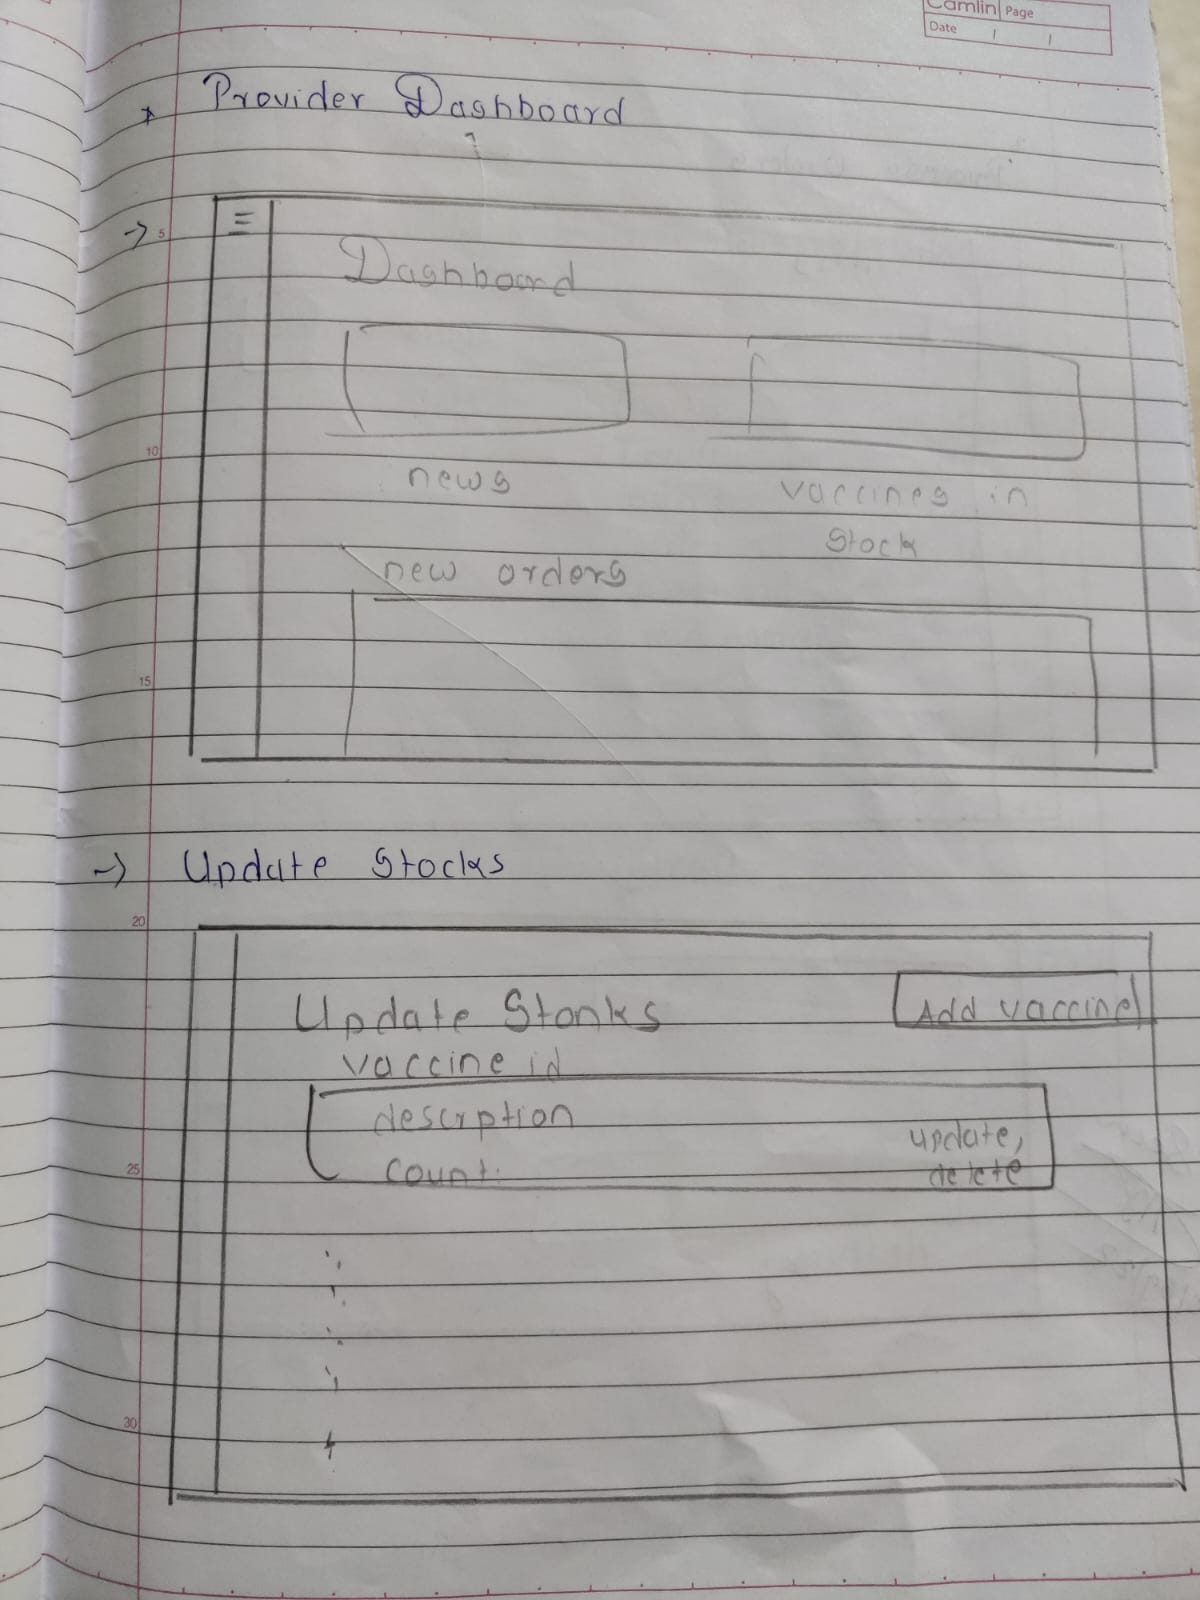 Camlin Page
Date / /
* Provider Dashboard
→ 5
Dashboard
10
news
vaccines in
stock
new orders
15
→ Update Stocks
20
Update Stonks
Add vaccine
vaccine id
descrption
update,
25
count:
delete
30